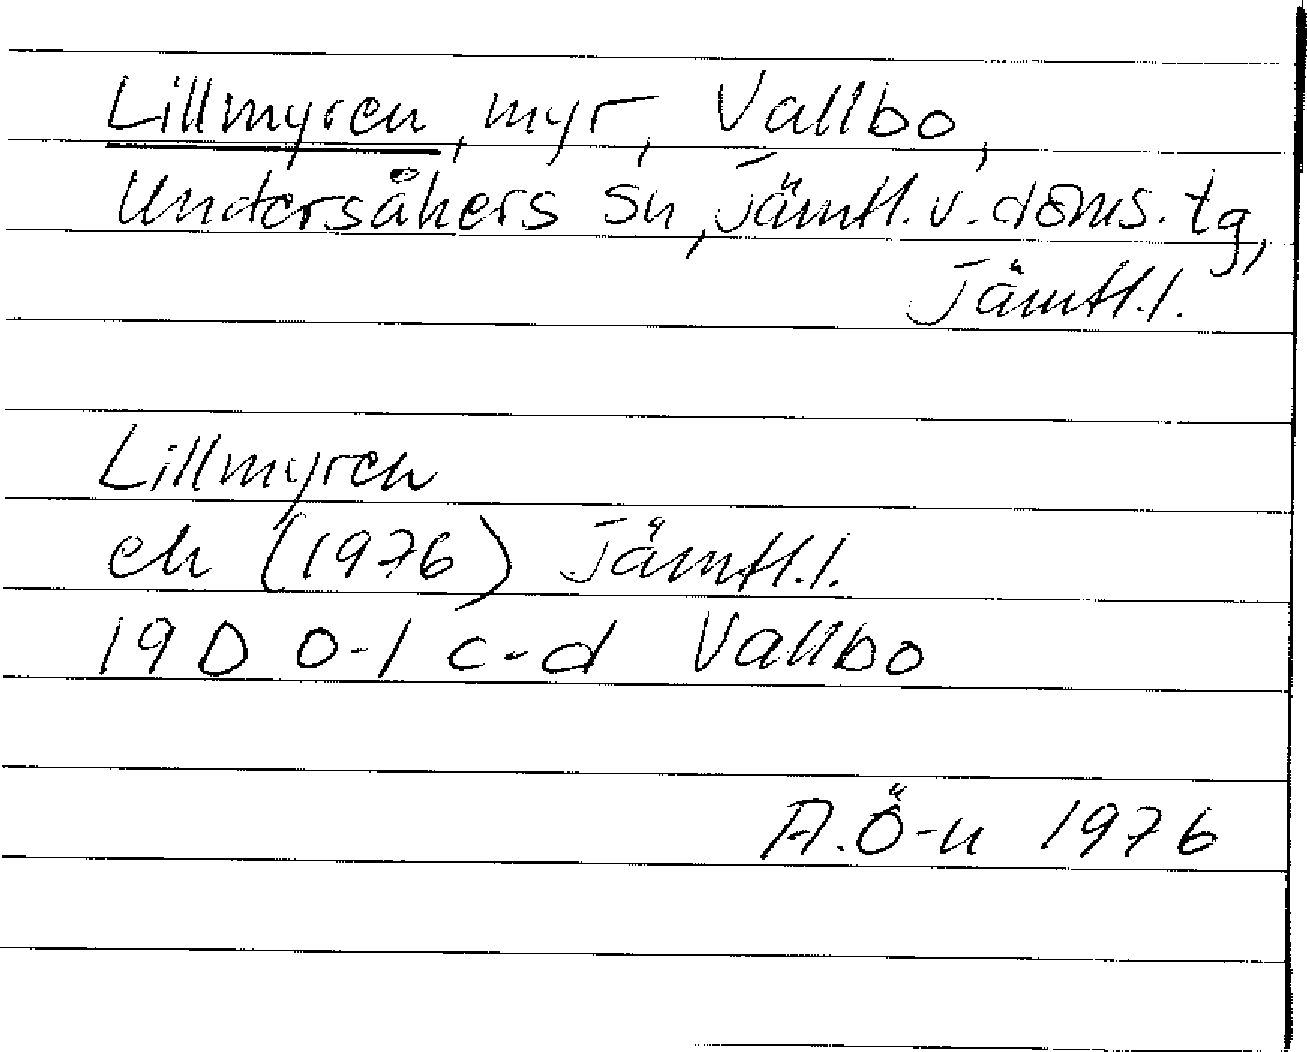 Lillmyren, myr, Vallbo,
Undersåkers sn, Jämtl. v. doms. tg,
Jämtl.l.
Lillmyren
ek (1976) Jämtl.l.
19 D 0-1 c-d Vallbo
A.Ö-n 1976